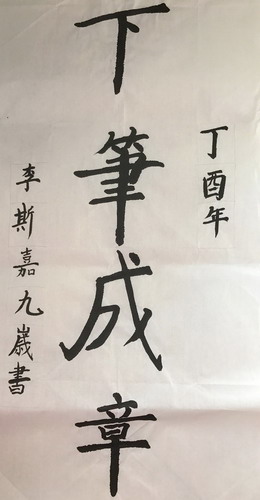 丁酉年
下筆成章
李斯嘉九歲書